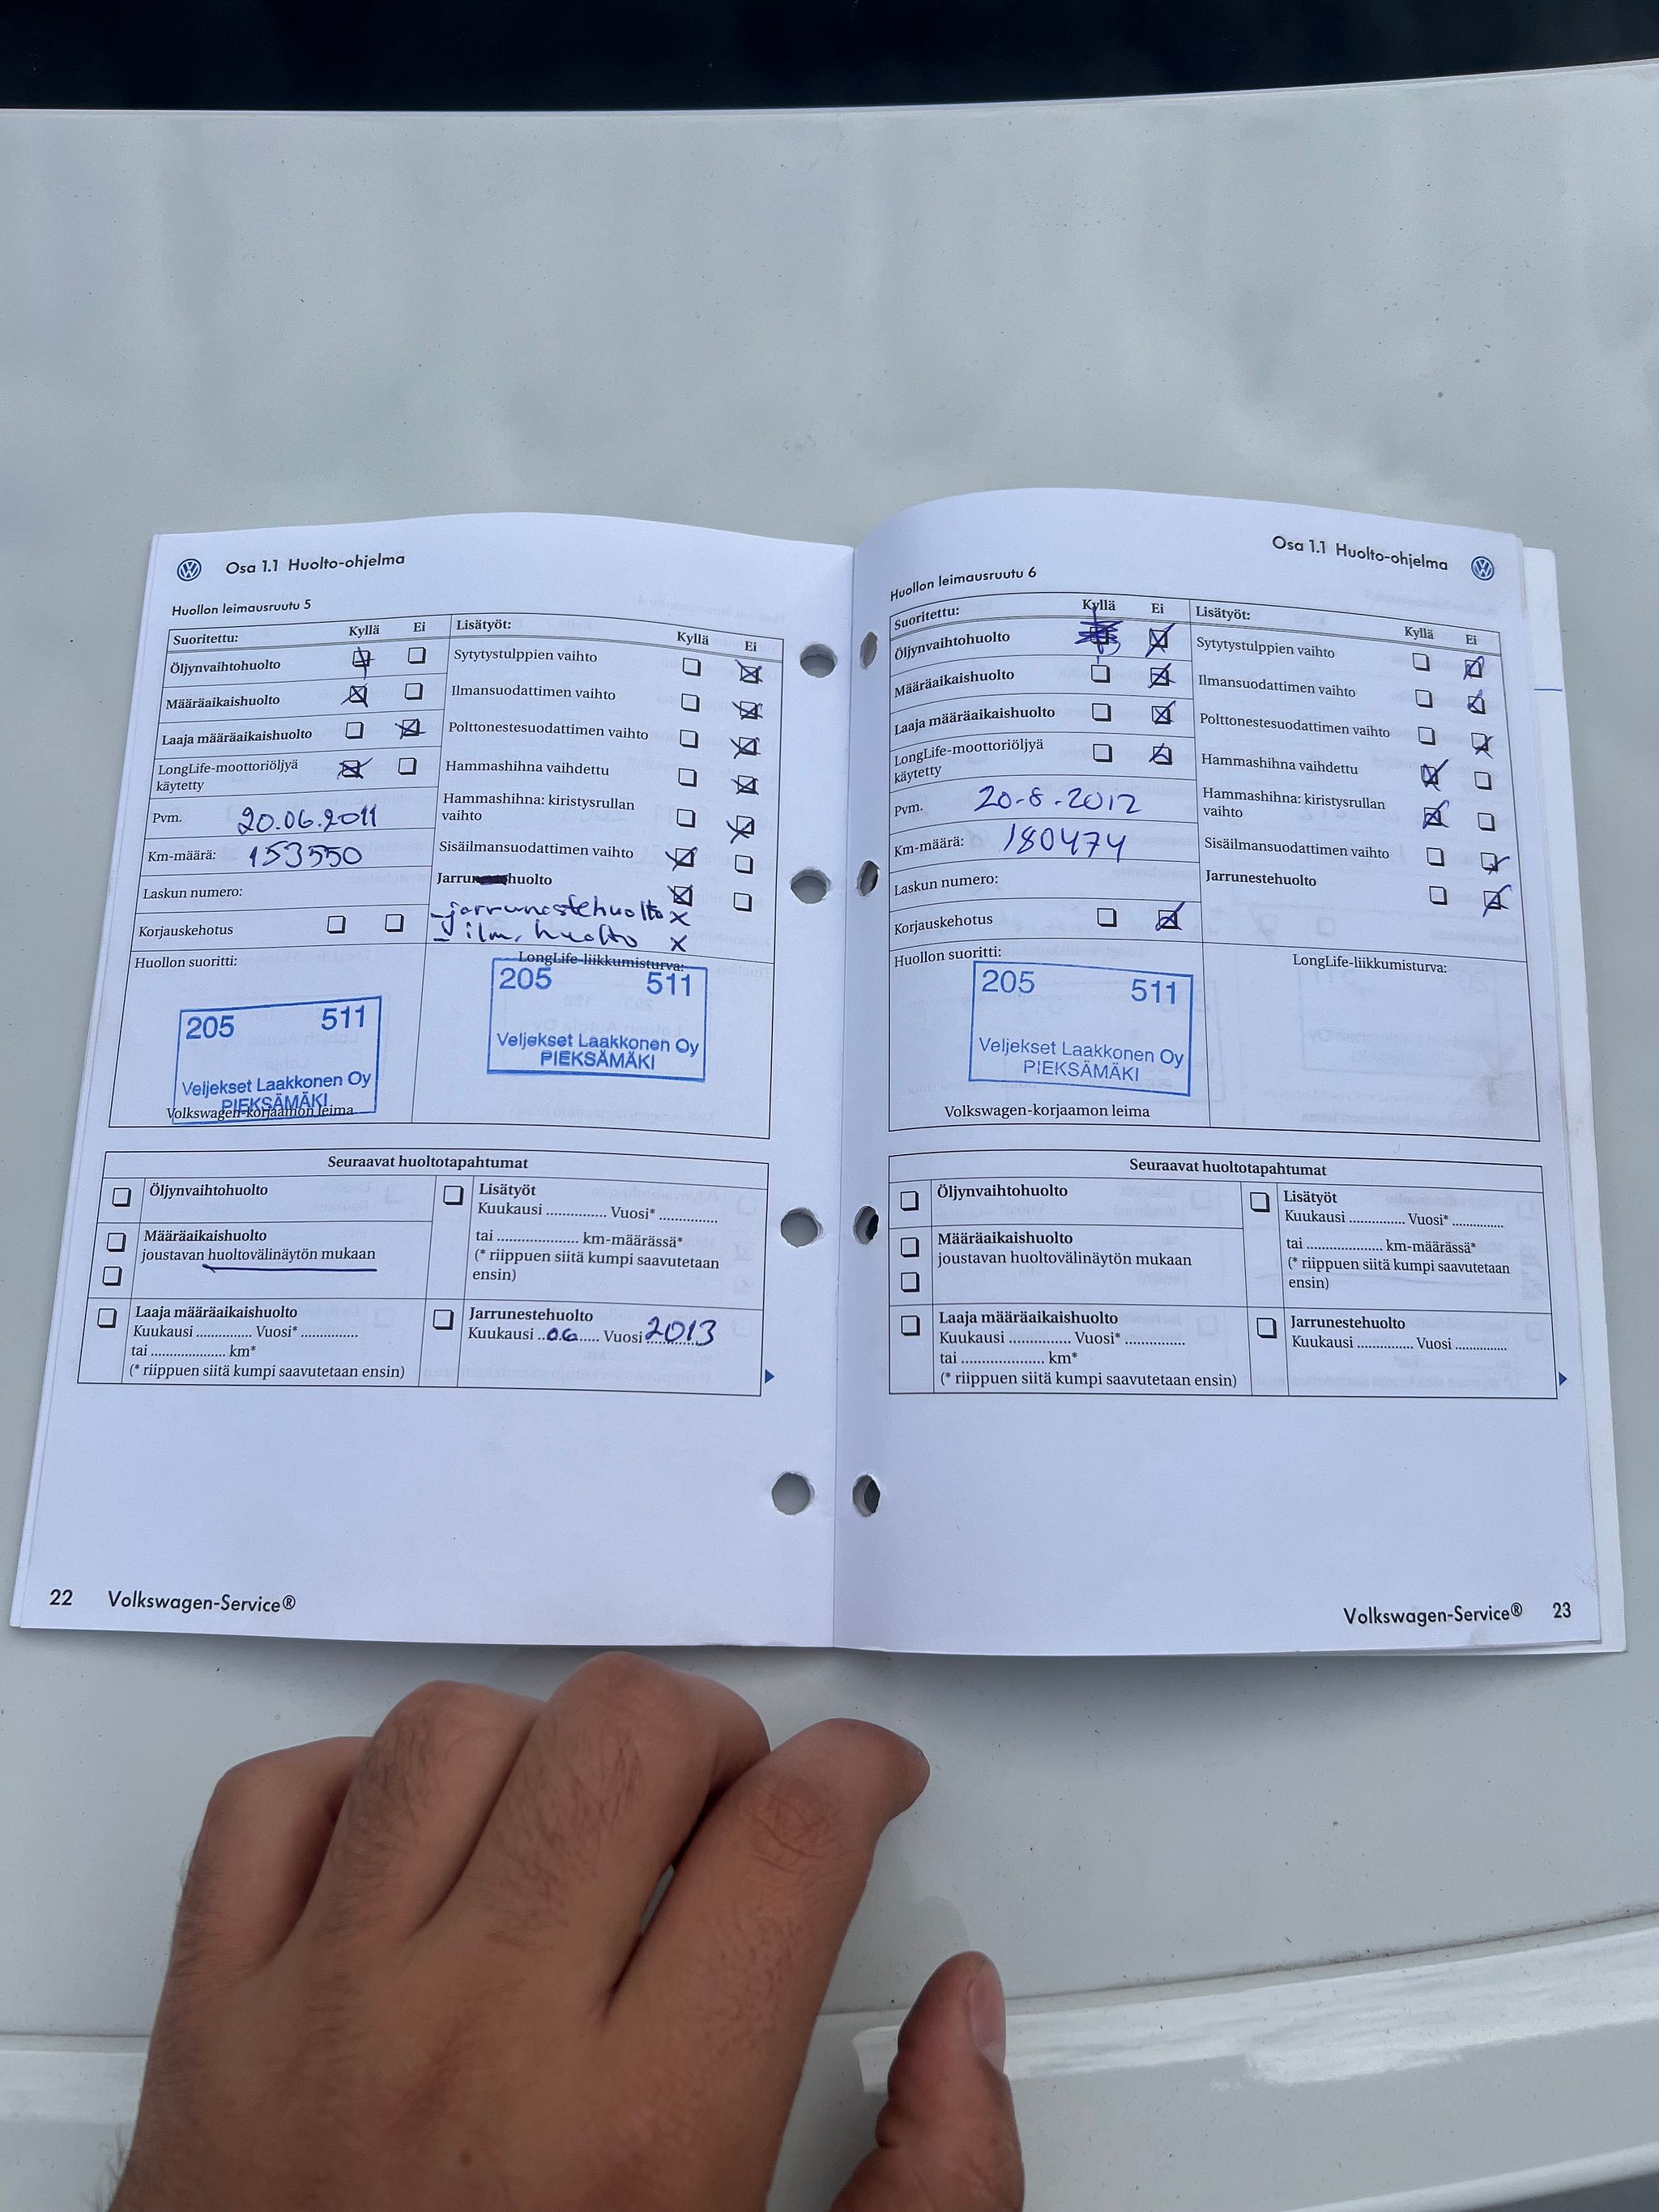 Osa 1.1 Huolto-ohjelma
Huollon leimausruutu 5
Suoritettu: Kyllä Ei
Öljynvaihtohuolto
Määräaikaishuolto
Laaja määräaikaishuolto
LongLife-moottoriöljyä
käytetty
Pvm. 20.06.2011
Km-määrä: 153550
Laskun numero:
Korjauskehotus
Lisätyöt: Kyllä Ei
Sytytystulppien vaihto
Ilmansuodattimen vaihto
Polttonestesuodattimen vaihto
Hammashihna vaihdettu
Hammashihna: kiristysrullan
vaihto
Sisäilmansuodattimen vaihto
Jarru huolto
-jarrunestehuolto x
- ilm. huolto x
Huollon suoritti:
205 511
Veljekset Laakkonen Oy
PIEKSÄMÄKI
Volkswagen-korjaamon leima
LongLife-liikkumisturva:
205 511
Veljekset Laakkonen Oy
PIEKSÄMÄKI
Seuraavat huoltotapahtumat
Öljynvaihtohuolto
Määräaikaishuolto
joustavan huoltovälinäytön mukaan
Laaja määräaikaishuolto
Kuukausi .............. Vuosi* ..............
tai .................... km*
(* riippuen siitä kumpi saavutetaan ensin)
Lisätyöt
Kuukausi .............. Vuosi* ..............
tai .................... km-määrässä*
(* riippuen siitä kumpi saavutetaan
ensin)
Jarrunestehuolto
Kuukausi ..06..... Vuosi 2013
22 Volkswagen-Service®
Osa 1.1 Huolto-ohjelma
Huollon leimausruutu 6
Suoritettu: Kyllä Ei
Öljynvaihtohuolto
Määräaikaishuolto
Laaja määräaikaishuolto
LongLife-moottoriöljyä
käytetty
Pvm. 20-8-2012
Km-määrä: 180474
Laskun numero:
Korjauskehotus
Lisätyöt: Kyllä Ei
Sytytystulppien vaihto
Ilmansuodattimen vaihto
Polttonestesuodattimen vaihto
Hammashihna vaihdettu
Hammashihna: kiristysrullan
vaihto
Sisäilmansuodattimen vaihto
Jarrunestehuolto
Huollon suoritti:
205 511
Veljekset Laakkonen Oy
PIEKSÄMÄKI
Volkswagen-korjaamon leima
LongLife-liikkumisturva:
Seuraavat huoltotapahtumat
Öljynvaihtohuolto
Määräaikaishuolto
joustavan huoltovälinäytön mukaan
Laaja määräaikaishuolto
Kuukausi .............. Vuosi* ..............
tai .................... km*
(* riippuen siitä kumpi saavutetaan ensin)
Lisätyöt
Kuukausi .............. Vuosi* ..............
tai .................... km-määrässä*
(* riippuen siitä kumpi saavutetaan
ensin)
Jarrunestehuolto
Kuukausi .............. Vuosi ..............
Volkswagen-Service® 23